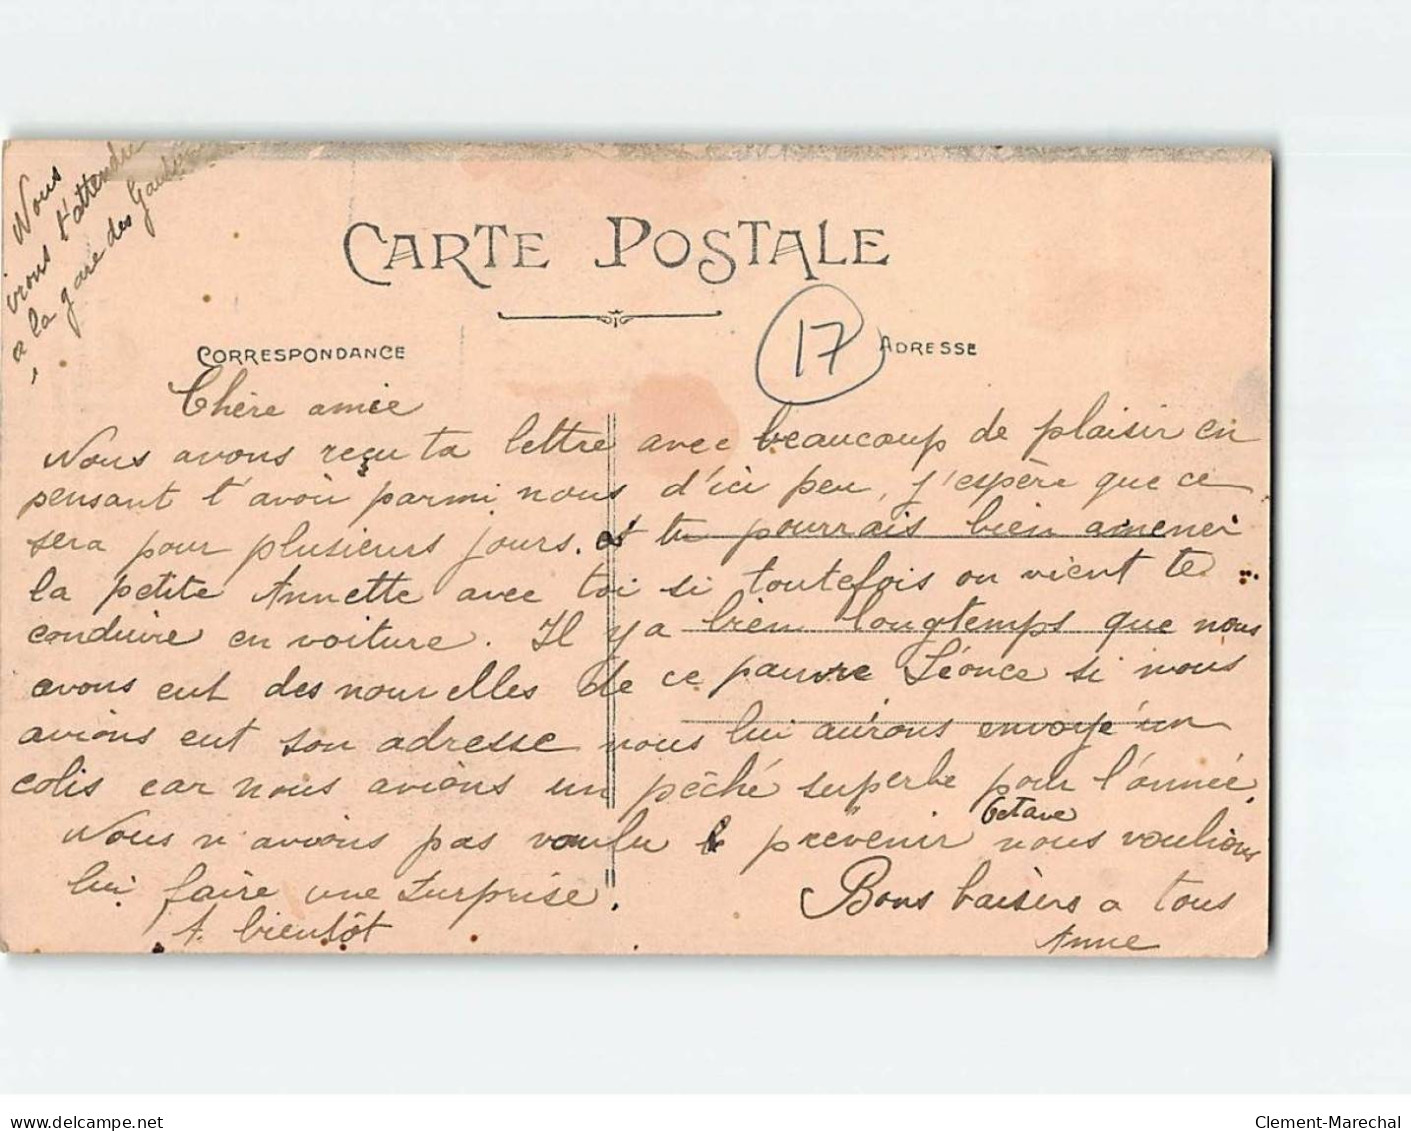 Nous
irons t'attendre
a la gare des
CARTE POSTALE
17
CORRESPONDANCE
ADRESSE
Chère amie
Nous avons reçu ta lettre avec beaucoup de plaisir en
pensant t'avoir parmi nous d'ici peu, j'espère que ce
sera pour plusieurs jours. et tu pourrais bien amener
la petite Annette avec toi si toutefois on vient te
conduire en voiture. Il y a bien longtemps que nous
avons eut des nouvelles de ce pauvre Léonce si nous
avions eut son adresse nous lui aurons envoyé un
colis car nous avions un pêché superbe pour l'année.
Octave
Nous n'avions pas voulu le prévenir nous voulions
lui faire une surprise.
Bons baisers a tous
A. bientôt
Anne
delcampe.net
Clement-Marechal